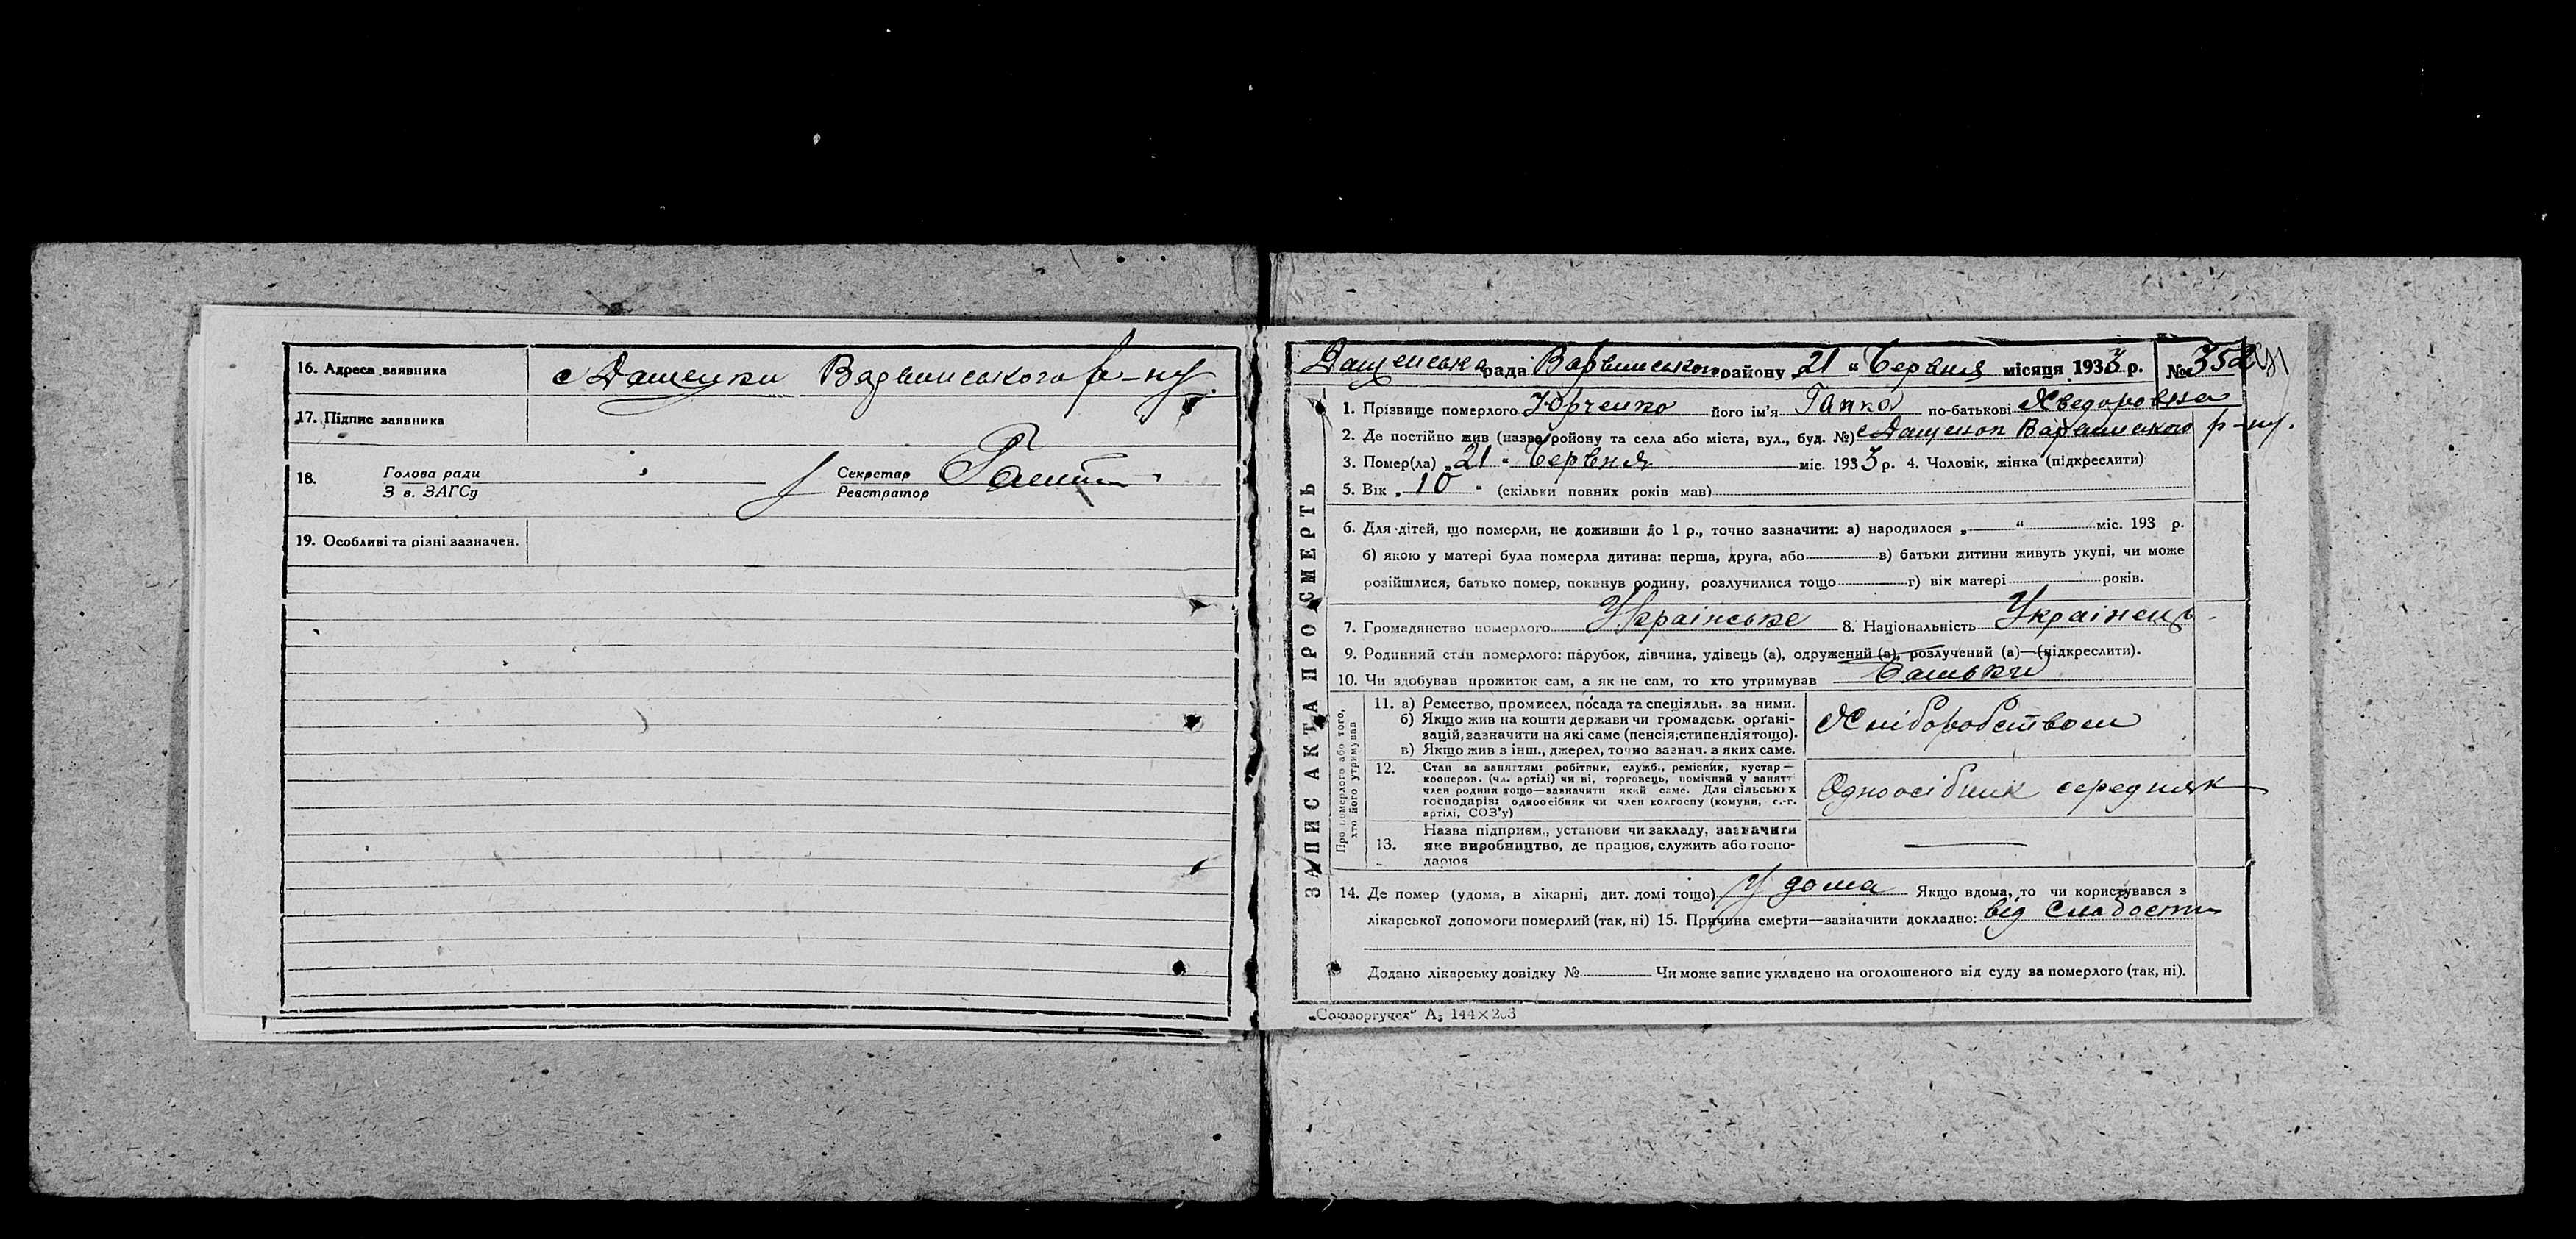 16. Адреса заявника с Дащенки Варвинського р-ну.
17. Підпис заявника
18. Голова ради Секретар
З в. ЗАГСу Реєстратор
19. Особливі та різні зазначен.
Дащенська рада Варвинського району „21 " Червня місяця 1933 р. № 352
1. Прізвище померлого Юрченко його ім'я Гапка по-батькові Хведоровна
2. Де постійно жив (назва ройону та села або міста, вул., буд. №) с Дащенки Варвинського р-ну.
3. Помер(ла) „21 " Червня міс. 1933 р. 4. Чоловік, жінка (підкреслити)
5. Вік „ 10 " (скільки повних років мав)
6. Для дітей, що померли, не доживши до 1 р., точно зазначити: а) народилося „ " міс. 193 р.
б) якою у матері була померла дитина: перша, друга, або в) батьки дитини живуть укупі, чи може
розійшлися, батько помер, покинув родину, розлучилися тощо г) вік матері років.
7. Громадянство померлого Українське 8. Національність Українець
9. Родинний стан померлого: парубок, дівчина, удівець (а), одружений (а), розлучений (а)—(підкреслити).
10. Чи здобував прожиток сам, а як не сам, то хто утримував батьки
ЗАПИС АКТА ПРО СМЕРТЬ
Про померлого або того,
хто його утримував
11. а) Ремество, промисел, посада та спеціяльн. за ними.
б) Якщо жив на кошти держави чи громадськ. органі-
зацій, зазначити на які саме (пенсія, стипендія тощо).
в) Якщо жив з інш., джерел, точно зазнач. з яких саме.
Хліборобством
12. Стан за заняттям: робітник, служб., ремісник, кустар—
кооперов. (чл. артілі) чи ні, торговець, помічний у занятт
член родини тощо—зазначити який саме. Для сільських
господарів: одноосібник чи член колгоспу (комуни, с.-г.
артілі, СОЗ'у)
Одноосібник середняк
13. Назва підприєм., установи чи закладу, зазначити
яке виробництво, де працює, служить або госпо-
дарює
14. Де помер (удома, в лікарні, дит. домі тощо) У дома Якщо вдома, то чи користувався з
лікарської допомоги померлий (так, ні) 15. Причина смерти—зазначити докладно: від слабости
Додано лікарську довідку № Чи може запис укладено на оголошеного від суду за померлого (так, ні).
„Союзоргучет" А5 144×203